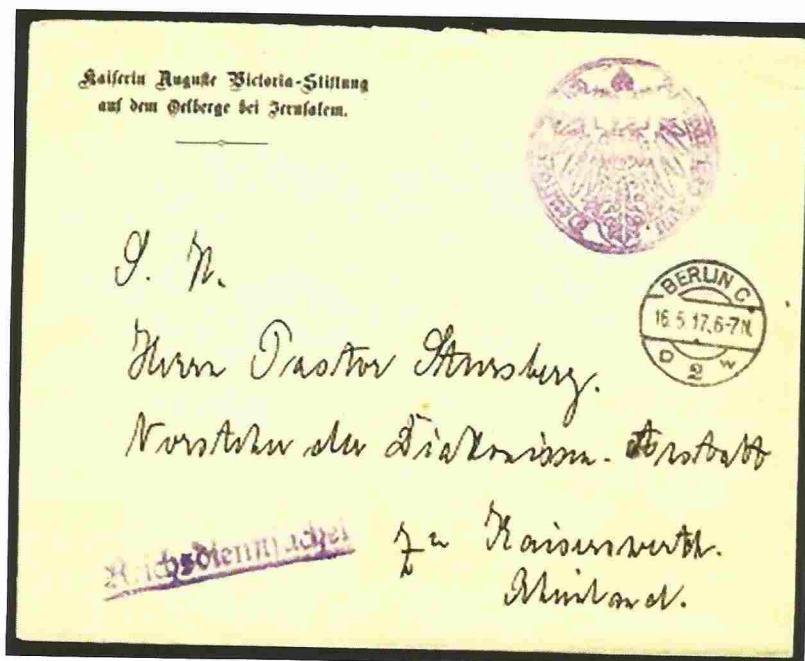 Kaiserin Auguste Victoria-Stiftung
auf dem Oelberge bei Jerusalem.
BERLIN C.
16.5.17.6-7N.
D 2 w
S. N.
Herrn Pastor Stursberg.
Vorsteher der Diakonissen-Anstalt
zu Kaiserswerth.
Rheinland.
Reichsdienstsache!